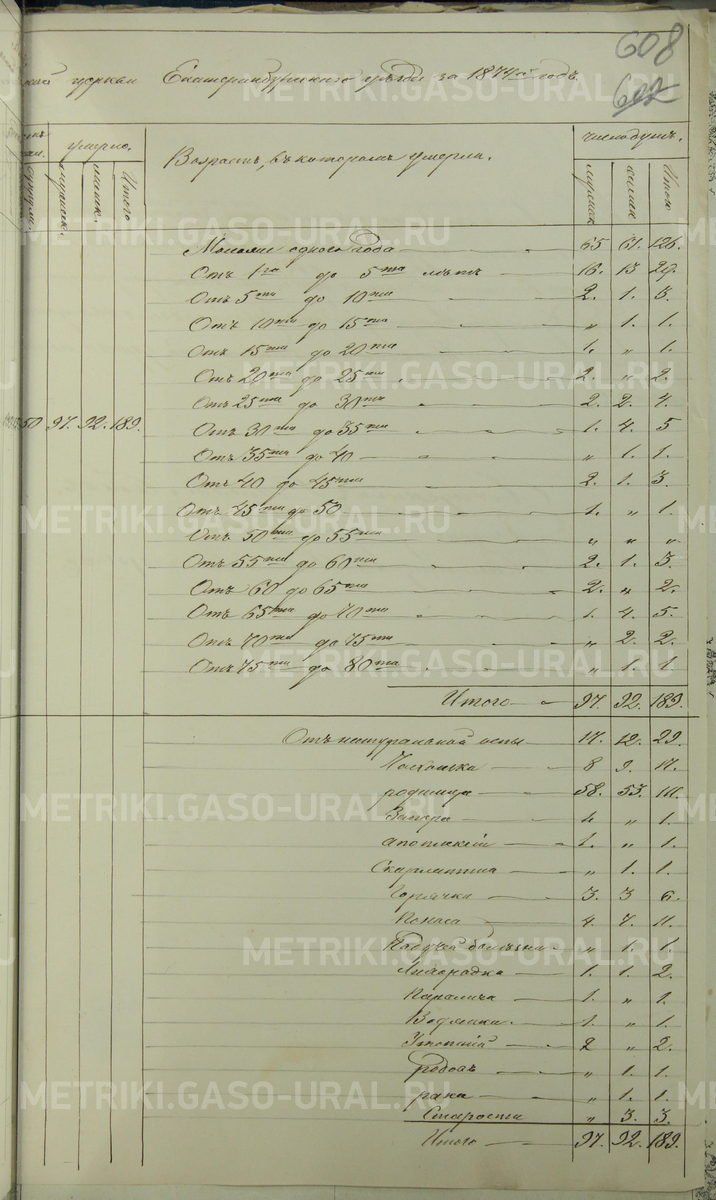 608
602
церкви Екатеринбургскаго уѣзда за 1874й годъ
умерло.
Возрастъ, въ которомъ умерли.
число душъ.
мужск.
женск.
Итого
мужск.
женск.
Итого
Моложе одного года 65 61. 126.
Отъ 1го до 5ти лѣтъ 16. 13 29.
Отъ 5ти до 10ти 2. 1. 3.
Отъ 10ти до 15ти „ 1. 1.
Отъ 15ти до 20ти 1. „ 1.
Отъ 20ти до 25ти 2. „ 2.
Отъ 25ти до 30ти 2. 2. 4.
50 97. 92. 189. Отъ 30ти до 35ти 1. 4. 5
Отъ 35ти до 40 „ 1. 1.
Отъ 40 до 45ти 2. 1. 3.
Отъ 45ти до 50 1. „ 1.
Отъ 50ти до 55ти „ „ „
Отъ 55ти до 60ти 2. 1. 3.
Отъ 60 до 65ти 2. „ 2.
Отъ 65ти до 70ти 1. 4. 5.
Отъ 70ти до 75ти „ 2. 2.
Отъ 75ти до 80ти „ 1. 1.
Итого 97. 92. 189.
Отъ натуральной оспы 17. 12. 29.
8 9. 17.
родимца 58. 53. 111.
Запора 1. „ 1.
1. „ 1.
Скарлатина „ 1. 1.
Горячки 3. 3 6.
Поноса 4. 7. 11.
Падучей болѣзни „ 1. 1.
Лихорадка 1. 1. 2.
Паралича 1. „ 1.
Водянки 1. „ 1.
Утопшій 2 „ 2.
родовъ „ 1. 1.
рака „ 1. 1.
Старости „ 3. 3.
Итого 97. 92. 189.
METRIKI.GASO-URAL.RU